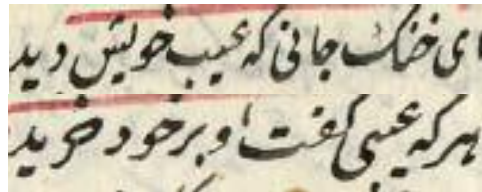 ای خنک جانی که عیب خویش دید
هرکه عیبی گفت او بر خود خرید